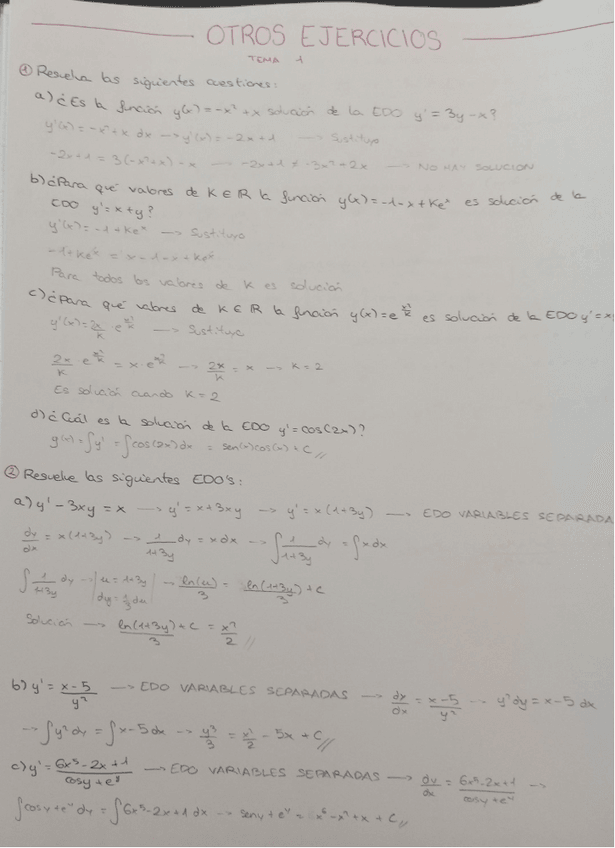 OTROS EJERCICIOS
TEMA 1
① Resuelva las siguientes cuestiones:
a) ¿Es la función y(x) = -x² + x solución de la EDO y' = 3y - x?
y'(x) = -x² + x dx → y'(x) = -2x + 1 → Sustituyo
-2x + 1 = 3(-x² + x) - x → -2x + 1 ≠ -3x² + 2x → NO HAY SOLUCIÓN
b) ¿Para qué valores de K ∈ ℝ la función y(x) = -1 - x + Ke^x es solución de la
EDO y' = x + y?
y'(x) = -1 + Ke^x → Sustituyo
-1 + Ke^x = x - 1 - x + Ke^x
Para todos los valores de K es solución
c) ¿Para qué valores de K ∈ ℝ la función y(x) = e^(x²/K) es solución de la EDO y' = x
y'(x) = 2x/K · e^(x²/K) → Sustituyo
2x/K · e^(x²/K) = x · e^(x²/K) → 2x/K = x → K = 2
Es solución cuando K = 2
d) ¿Cuál es la solución de la EDO y' = cos(2x)?
y(x) = ∫y' = ∫cos(2x)dx = sen(x)cos(x) + C //
② Resuelve las siguientes EDO's:
a) y' - 3xy = x → y' = x + 3xy → y' = x(1+3y) → EDO VARIABLES SEPARADA
dy/dx = x(1+3y) → 1/(1+3y) dy = x dx → ∫ 1/(1+3y) dy = ∫ x dx
∫ 1/(1+3y) dy → | u = 1+3y dy = 1/3 du | → ln(u)/3 = ln(1+3y)/3 + C
Solución → ln(1+3y)/3 + C = x²/2 //
b) y' = (x-5)/y² → EDO VARIABLES SEPARADAS → dy/dx = (x-5)/y² → y² dy = x-5 dx
→ ∫y² dy = ∫x-5 dx → y³/3 = x²/2 - 5x + C //
c) y' = (6x⁵ - 2x + 1)/(cosy + e^y) → EDO VARIABLES SEPARADAS → dy/dx = (6x⁵ - 2x + 1)/(cosy + e^y) →
∫cosy + e^y dy = ∫6x⁵ - 2x + 1 dx → seny + e^y = x⁶ - x² + x + C //